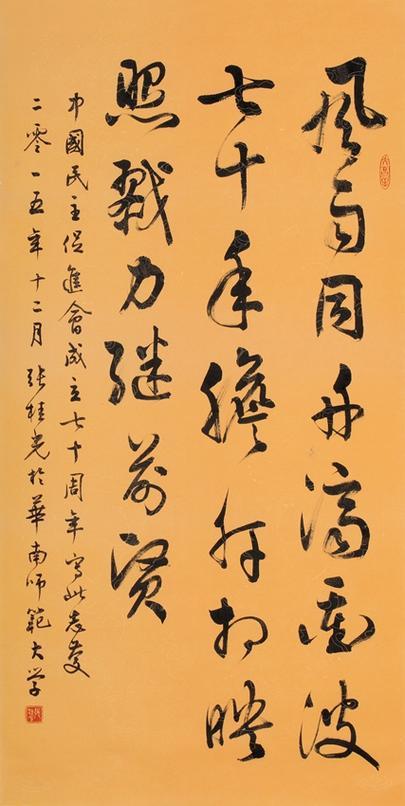 風雨同舟濟重波
七十年肝膽相映
照戮力繼前賢
中國民主促進會成立七十周年寫此志慶
二零一五年十二月張桂光於華南師範大学